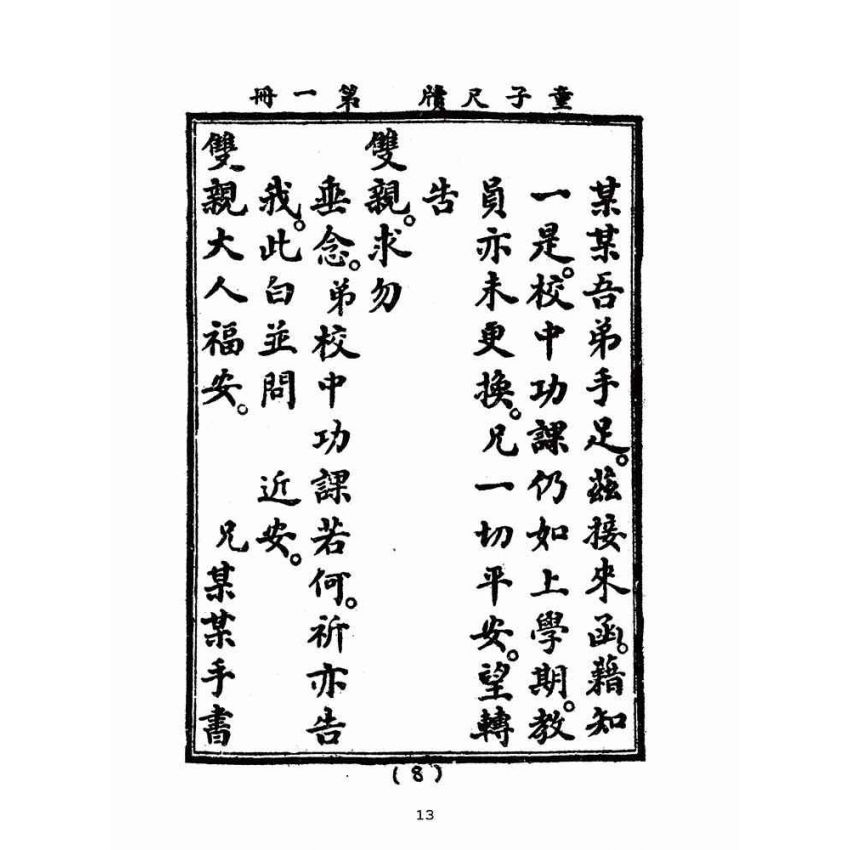 童子尺牘 第一冊
某某吾弟手足。茲接來函。藉知
一是。校中功課仍如上學期。教
員亦未更換。兄一切平安。望轉
告
雙親。求勿
垂念。弟校中功課若何。祈亦告
我。此白並問 近安。
雙親大人福安。 兄某某手書
(8)
13